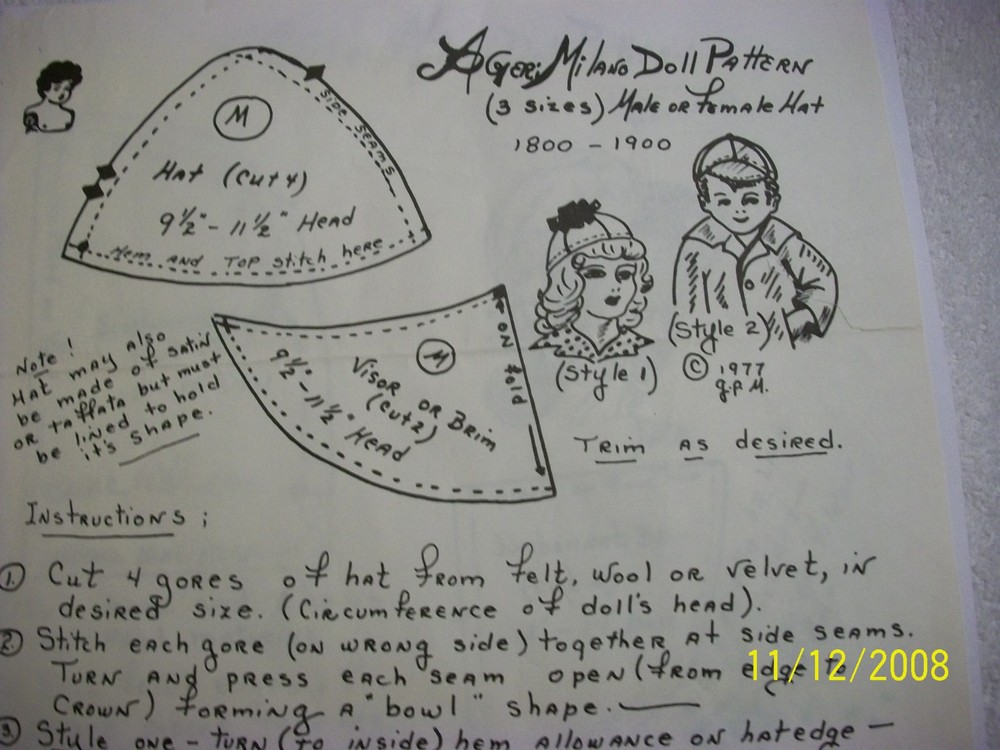 A Geri Milano Doll Pattern
(3 sizes) Male or female Hat
1800 - 1900
M
side seams
Hat (Cut 4)
9 1/2" - 11 1/2" Head
Hem and top stitch here
Note!
Hat may also
be made of satin
or taffata but must
be lined to hold
it's shape.
M
Visor or Brim
(cut 2)
9 1/2" - 11 1/2" Head
on fold
(Style 1)
(Style 2)
© 1977
g.p.M.
Trim as desired.
Instructions;
① Cut 4 gores of hat from felt, wool or velvet, in
desired size. (Circumference of doll's head).
② Stitch each gore (on wrong side) together at side seams.
Turn and press each seam open (from edge to
Crown) forming a "bowl" shape.
③ Style one - turn (to inside) hem allowance on hat edge -
11/12/2008